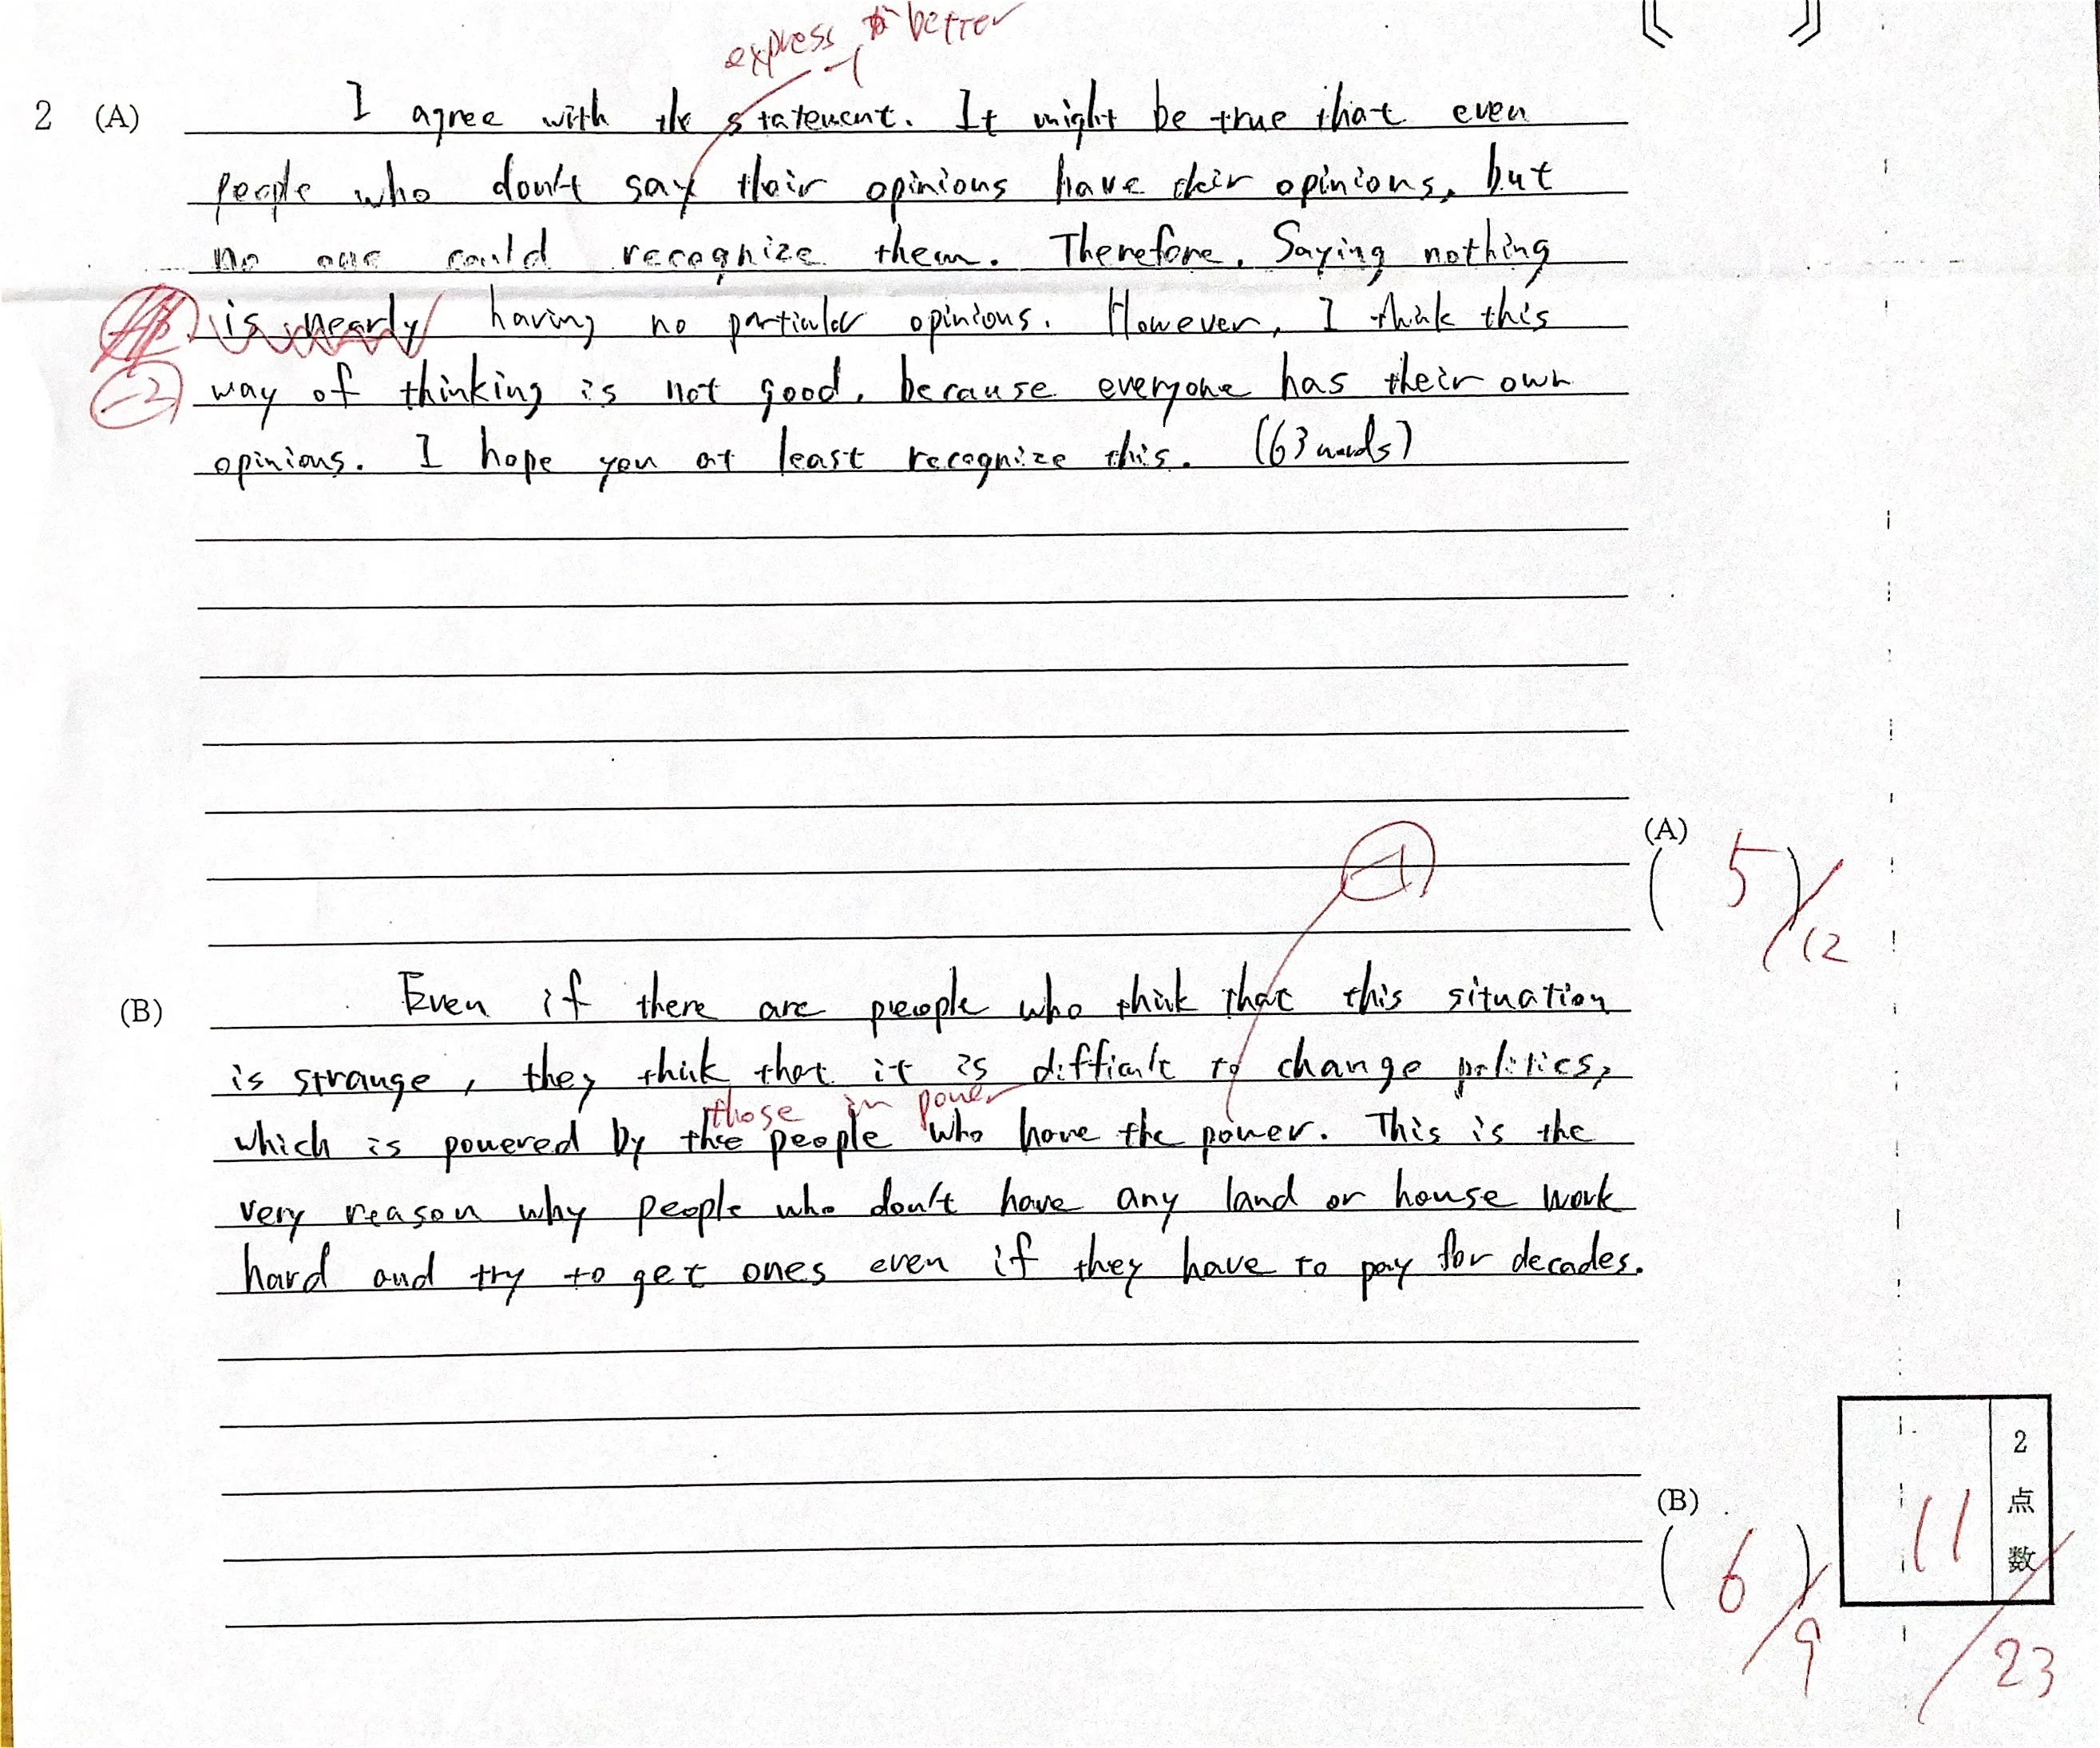 express to better
-1
2 (A) I agree with the statement. It might be true that even
people who don't say their opinions have their opinions, but
no one could recognize them. Therefore, Saying nothing
is nearly having no particular opinions. However, I think this
-2 way of thinking is not good, because everyone has their own
opinions. I hope you at least recognize this. (63 words)
-1
(A)
(5)/12
(B) Even if there are people who think that this situation
is strange, they think that it is difficult to change politics,
those in power
which is powered by the people who have the power. This is the
very reason why people who don't have any land or house work
hard and try to get ones even if they have to pay for decades.
(B)
(6)/9
2点数
11/23